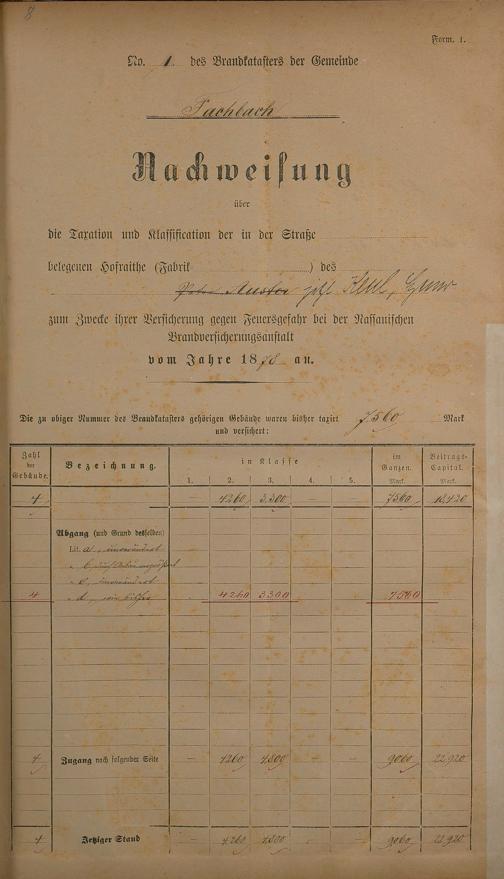 8
Form. 1.
No. 1 des Brandkatasters der Gemeinde
Fachbach
Nachweisung
über
die Taxation und Klassification der in der Straße
belegenen Hofraithe (Fabrik ) des
Keul,
zum Zwecke ihrer Versicherung gegen Feuersgefahr bei der Nassauischen
Brandversicherungsanstalt
vom Jahre 1878 an.
Die zu obiger Nummer des Brandkatasters gehörigen Gebäude waren bisher taxirt 7560 Mark
und versichert:
Zahl der Gebäude. Bezeichnung. in Klasse im Ganzen. Beitrags-Capital.
1. 2. 3. 4. 5. Mark. Mark.
4 — 4260 3300 — — 7560 18,420
Abgang (und Grund desselben)
Lit. a, unverändert
" b,
" c, unverändert
4 " d, wie bisher 4260 3300 7560
4 Zugang nach folgender Seite — 4260 4800 — — 9060 22,920
4 Jetziger Stand — 4260 4800 — — 9060 22,920